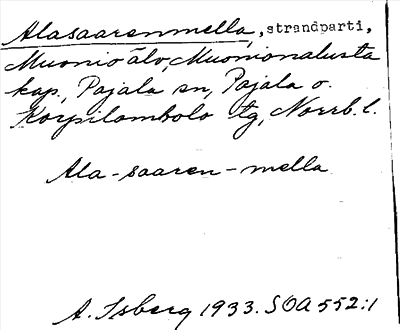 Alasaarenmella, strandparti,
Muonio älv, Muonionalusta
kap., Pajala sn, Pajala o.
Korpilombolo tg, Norrb. l.
Ala-saaren-mella
A. Isberg 1933. SOA 552:1